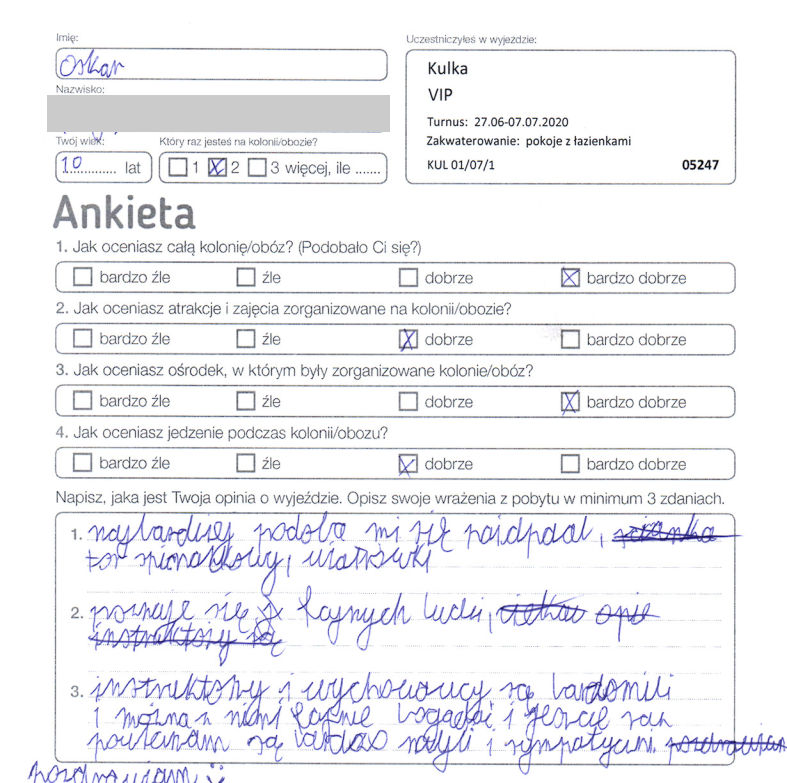 Imię:
Oskar
Nazwisko:
Twój wiek:
10 lat
Który raz jesteś na kolonii/obozie?
1 2 3 więcej, ile .......
Uczestniczyłeś w wyjeździe:
Kulka
VIP
Turnus: 27.06-07.07.2020
Zakwaterowanie: pokoje z łazienkami
KUL 01/07/1 05247
Ankieta
1. Jak oceniasz całą kolonię/obóz? (Podobało Ci się?)
bardzo źle źle dobrze bardzo dobrze
2. Jak oceniasz atrakcje i zajęcia zorganizowane na kolonii/obozie?
bardzo źle źle dobrze bardzo dobrze
3. Jak oceniasz ośrodek, w którym były zorganizowane kolonie/obóz?
bardzo źle źle dobrze bardzo dobrze
4. Jak oceniasz jedzenie podczas kolonii/obozu?
bardzo źle źle dobrze bardzo dobrze
Napisz, jaka jest Twoja opinia o wyjeździe. Opisz swoje wrażenia z pobytu w minimum 3 zdaniach.
1. najbardziej podoba mi się paidpdal, ścianka
tor wiatrówki
2. poznaje się fajnych ludzi, opie
instruktorzy są
3. instruktorzy i wychowawcy są bardomili
i można z nimi fajnie i jeszcze raz
powtarzam są bardzo mili i sympatyczni
pozdrawiam